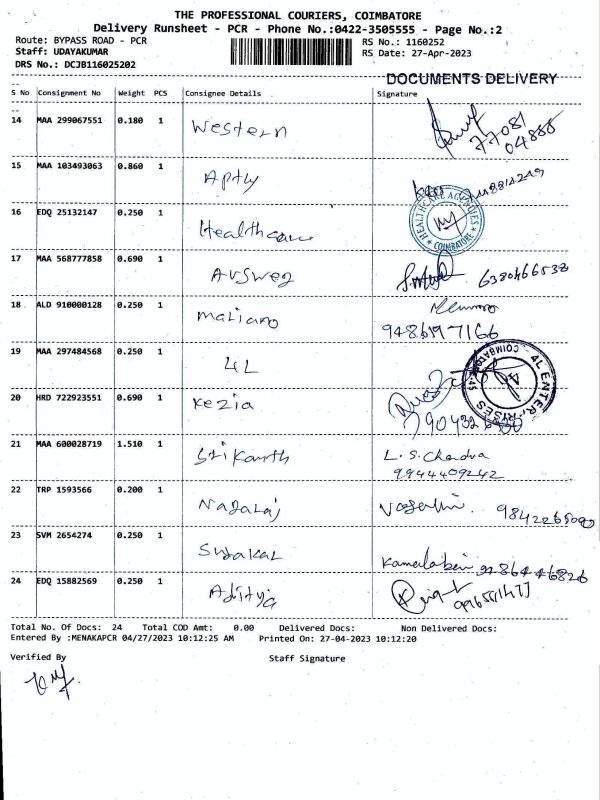 THE PROFESSIONAL COURIERS, COIMBATORE
Delivery Runsheet - PCR - Phone No.:0422-3505555 - Page No.:2
Route: BYPASS ROAD - PCR
RS No.: 1160252
Staff: UDAYAKUMAR
RS Date: 27-Apr-2023
DRS No.: DCJB116025202
DOCUMENTS DELIVERY
S No Consignment No Weight PCS Consignee Details Signature
14 MAA 299067551 0.180 1 Western 77081 04888
15 MAA 103493063 0.860 1 Aptly
16 EDQ 25132147 0.250 1 Healthcare HEALTHCARE AGENCIES COIMBATORE
17 MAA 568777858 0.690 1 6380466538
18 ALD 910000128 0.250 1 9486197166
19 MAA 297484568 0.250 1 4L 4L ENTERPRISES COIMBATORE-45
20 HRD 722923551 0.690 1 Kezia
21 MAA 600028719 1.510 1 Srikanth L.S. Chandra
9944409242
22 TRP 1593566 0.200 1 Nagaraj
23 SVM 2654274 0.250 1
24 EDQ 15882569 0.250 1 Aditya
Total No. Of Docs: 24 Total COD Amt: 0.00 Delivered Docs: Non Delivered Docs:
Entered By :MENAKAPCR 04/27/2023 10:12:25 AM Printed On: 27-04-2023 10:12:20
Verified By Staff Signature